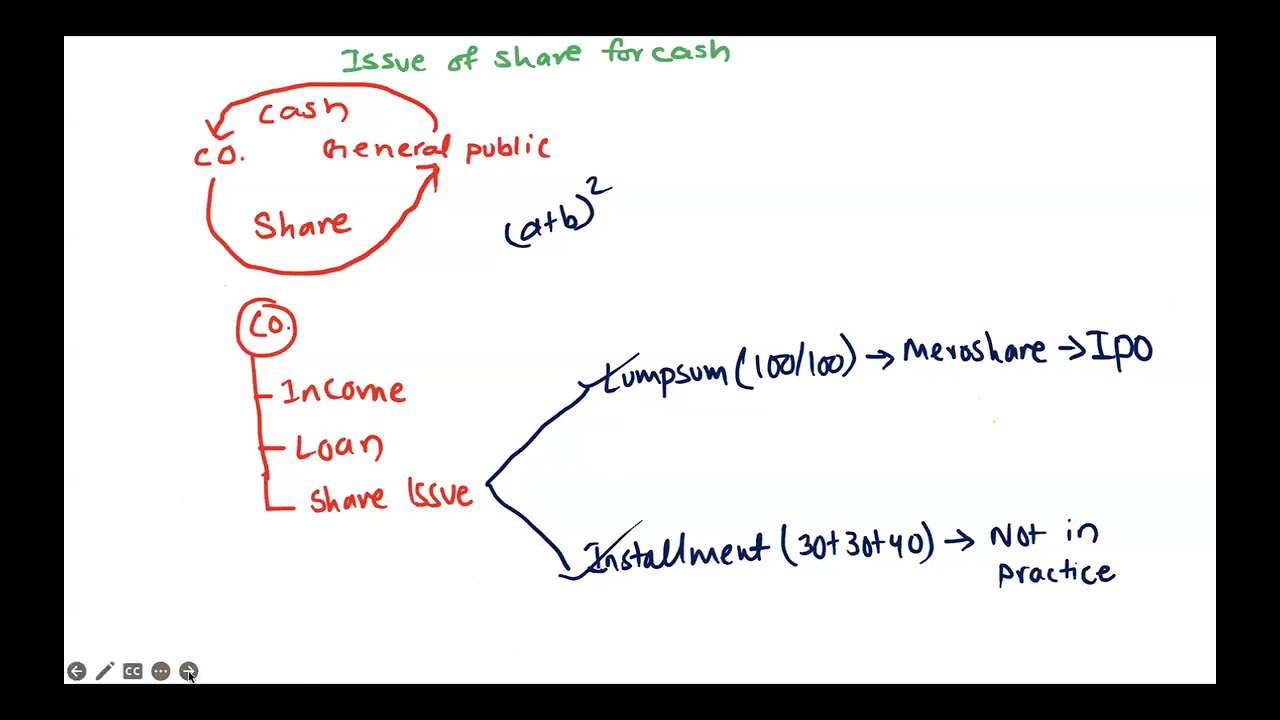 Issue of share for cash
cash
CO. General public
Share
(a+b)²
CO.
Income
Loan
Share Issue
Lumpsum (100/100) → Meroshare → IPO
Installment (30+30+40) → Not in
practice
CC